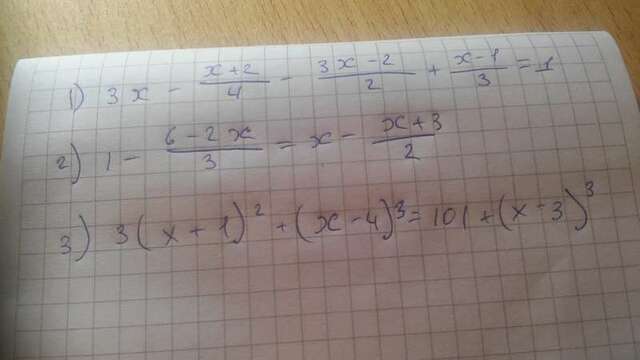 1) 3x - \frac{x+2}{4} - \frac{3x-2}{2} + \frac{x-1}{3} = 1
2) 1 - \frac{6-2x}{3} = x - \frac{x+3}{2}
3) 3(x+1)^2 + (x-4)^3 = 101 + (x-3)^3